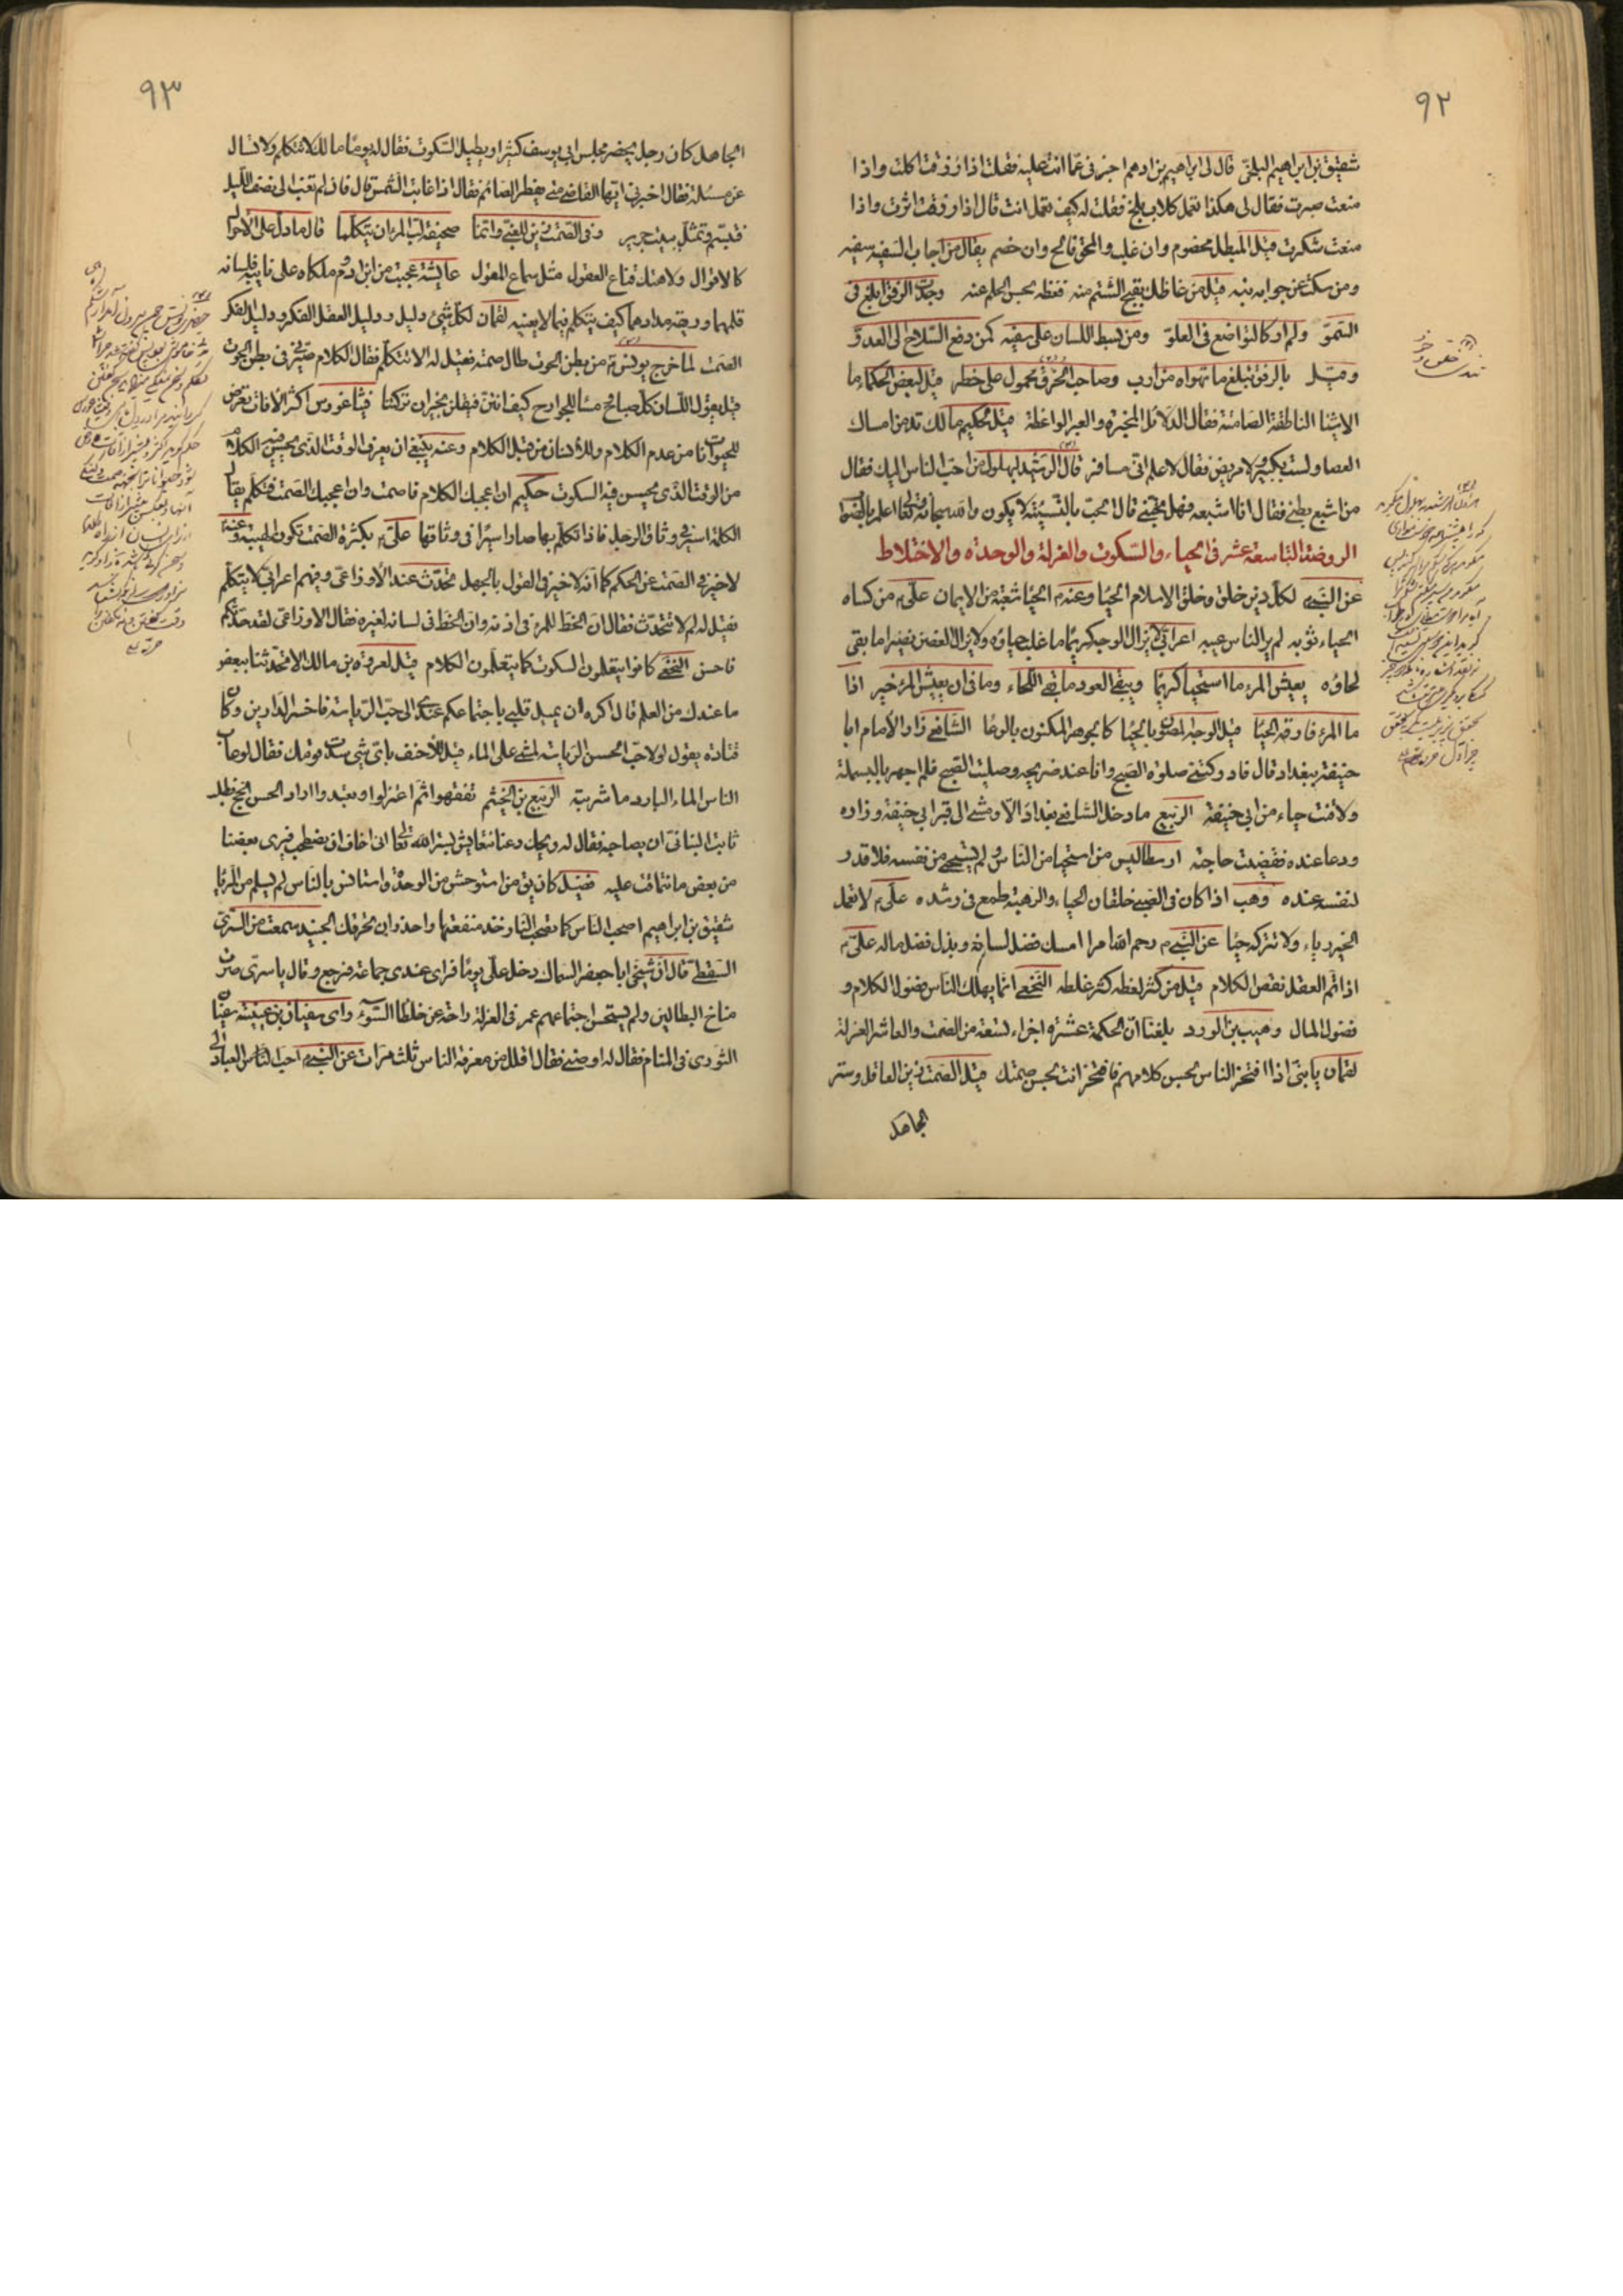 ٩٢
شقيق بن ابراهيم البلخى قال لى ابراهيم بن ادهم اخبرنى عما انت عليه فقلت اذا رزقت اكلت واذا
منعت صبرت فقال لى هكذا تعمل كلاب بلخ فقلت له كيف تعمل انت قال اذا رزقت اثرت واذا
منعت شكرت قيل المبطل مخصوم وان غلب والمحق فالح وان خصم يقال من اجاب السفيه سفيه
ومن سكت عن جوابه نبيه قيل من غاظك بقبح الشتم منه فغظه بحسن الحلم عنه وجدت الرفق ابلغ فى
السموّ ولم ار كالتواضع فى العلوّ ومن بسط اللسان على سفيه كمن دفع السلاح الى العدوّ
وقيل بالرفق تبلغ ما تهواه من ارب وصاحب الخرق محمول على خطر قيل لبعض الحكماء ما
الاشيا الناطقة الصامتة فقال الدلائل المخبرة والعبر الواعظة قيل لحكيم مالك تدمن امساك
العصا ولست بكبير ولا مريض فقال لاعلم انى مسافر قال الرشيد لبهلول من احب الناس اليك فقال
من اشبع بطنى فقال انا اشبعه فهل تحبنى قال الحب بالنسيئة لا يكون والله سبحانه وتعالى اعلم بالصواب
الروضة التاسعة عشر فى الحياء والسكوت والعزلة والوحدة والاختلاط
عن النبى لكل دين خلق وخلق الاسلام الحيا وعنه م الحيا شعبة من الايمان على من كساه
الحياء ثوبه لم ير الناس عيبه اعرابى لا يزال الوجه كريما ما غلب حياؤه ولا يزال الغصن نضيرا ما بقى
لحاؤه يعيش المرء ما استحيا كريما ويبقى العود ما بقى اللحاء وما فى ان يعيش المرء خير اذا
ما المرء فارقه الحيا قيل الوجه المصون بالحيا كالجوهر المكنون بالوعا الشافعى زار الامام ابا
حنيفة ببغداد قال فادركتنى صلوة الصبح وانا عند ضريحه وصليت الصبح فلم اجهر بالبسملة
ولا قنت حياء من ابى حنيفة الربيع ما دخل الشافعى بغداد الا ومشى الى قبر ابى حنيفة وزاره
ودعا عنده فقضيت حاجته ارسطاليس من استحيا من الناس ولم يستحى من نفسه فلا قدر
لنفسه عنده وهب اذا كان فى الصبى خلقان الحياء والرهبة طمع فى رشده على لا تعمل
الخير رياء ولا تتركه حيا عن النبى م رحم الله امرا امسك فضل لسانه وبذل فضل ماله على م
اذا تم العقل نقص الكلام قيل من كثر لفظه كثر غلطه النخعى انما يهلك الناس فضول الكلام و
فضول المال وهيب بن الورد بلغنا ان الحكمة عشرة اجزاء تسعة من الصمت والعاشر العزلة
لقمان يا بنى اذا افتخر الناس بحسن كلامهم فافتخر انت بحسن صمتك قيل الصمت زين العاقل وستر
الجاهل
٩٣
الجاهل كان رجل يحضر مجلس ابى يوسف كثيرا ويطيل السكوت فقال له يوما مالك لا تتكلم ولا تسال
عن مسئلة فقال اخبرنى ايها القاضى متى يفطر الصائم فقال اذا غابت الشمس قال فان لم تغب الى نصف الليل
فتبسم وتمثل ببيت جرير وفى الصمت زين للغبى وانما صحيفة لب المرء ان يتكلما قال ما دل على الاحوال
كالاقوال ولا هتك قناع العقول مثل سماع المقول عايشة عجبت من ابن ادم ملكاه على نابيه فلسانه
قلمهما وريقه مدادهما كيف يتكلم فيما لا يعنيه لقمان لكل شئ دليل ودليل العقل الفكر ودليل الفكر
الصمت لما خرج يونس م من بطن الحوت طال صمته فقيل له الا تتكلم فقال الكلام صيرنى فى بطن الحوت
قيل يقول اللسان كل صباح ومسا للجوارح كيف انتن فيقلن بخير ان تركتنا فيثاغورس اكثر الآفات تعرض
للحيوانات من عدم الكلام وللانسان من قبل الكلام وعنه ينبغى ان يعرف الوقت الذى يحسن فيه الكلام
من الوقت الذى يحسن فيه السكوت حكيم ان اعجبك الكلام فاصمت وان اعجبك الصمت فتكلم يقال
الكلمة اسيرة فى وثاق الرجل فاذا تكلم بها صار اسيرا فى وثاقها على م بكثرة الصمت تكون الهيبة وعنه
لا خير فى الصمت عن الحكم كما انه لا خير فى القول بالجهل تحدث عند الاوزاعى وفيهم اعرابى لا يتكلم
فقيل له لم لا تتحدث فقال ان الحظ للمرء فى اذنه وان الحظ فى لسانه لغيره فقال الاوزاعى لقد حدثكم
فاحسن النخعى كانوا يتعلمون السكوت كما يتعلمون الكلام قيل لعروة بن مالك الا تحدثنا ببعض
ما عندك من العلم قال اكره ان يميل قلبى باجتماعكم عندى الى حب الرياسة فاخسر الدارين وكان
قتادة يقول لولا حب الحسن الرياسة لمشى على الماء قيل للاحنف باى شئ سدت قومك فقال لو عاب
الناس الماء البارد ما شربته الربيع بن الخيثم تفقهوا ثم اعتزلوا وتعبدوا اراد الحسن الحج فطلب
ثابت البنانى ان يصاحبه فقال له ويحك دعنا نتعايش بستر الله تعالى انى اخاف ان نصطحب فيرى بعضنا
من بعض ما نتماقت عليه فضيل كان يق من استوحش من الوحدة واستانس بالناس لم يسلم من الريا
شقيق بن ابراهيم اصحب الناس كما تصحب النار خذ منفعتها واحذر ان تحرقك الجنيد سمعت من السرى
السقطى قال ان شيخى ابا جعفر السماك دخل على يوما فراى عندى جماعة فرجع وقال يا سرى صرت
مناخ البطالين ولم يستحسن اجتماعهم عمر فى العزلة راحة عن خلطا السوء راى سفيان بن عيينة سفيان
الثورى فى المنام فقال له اوصنى فقال اقلل من معرفة الناس ثلث مرات عن النبى احب الناس العباد الى